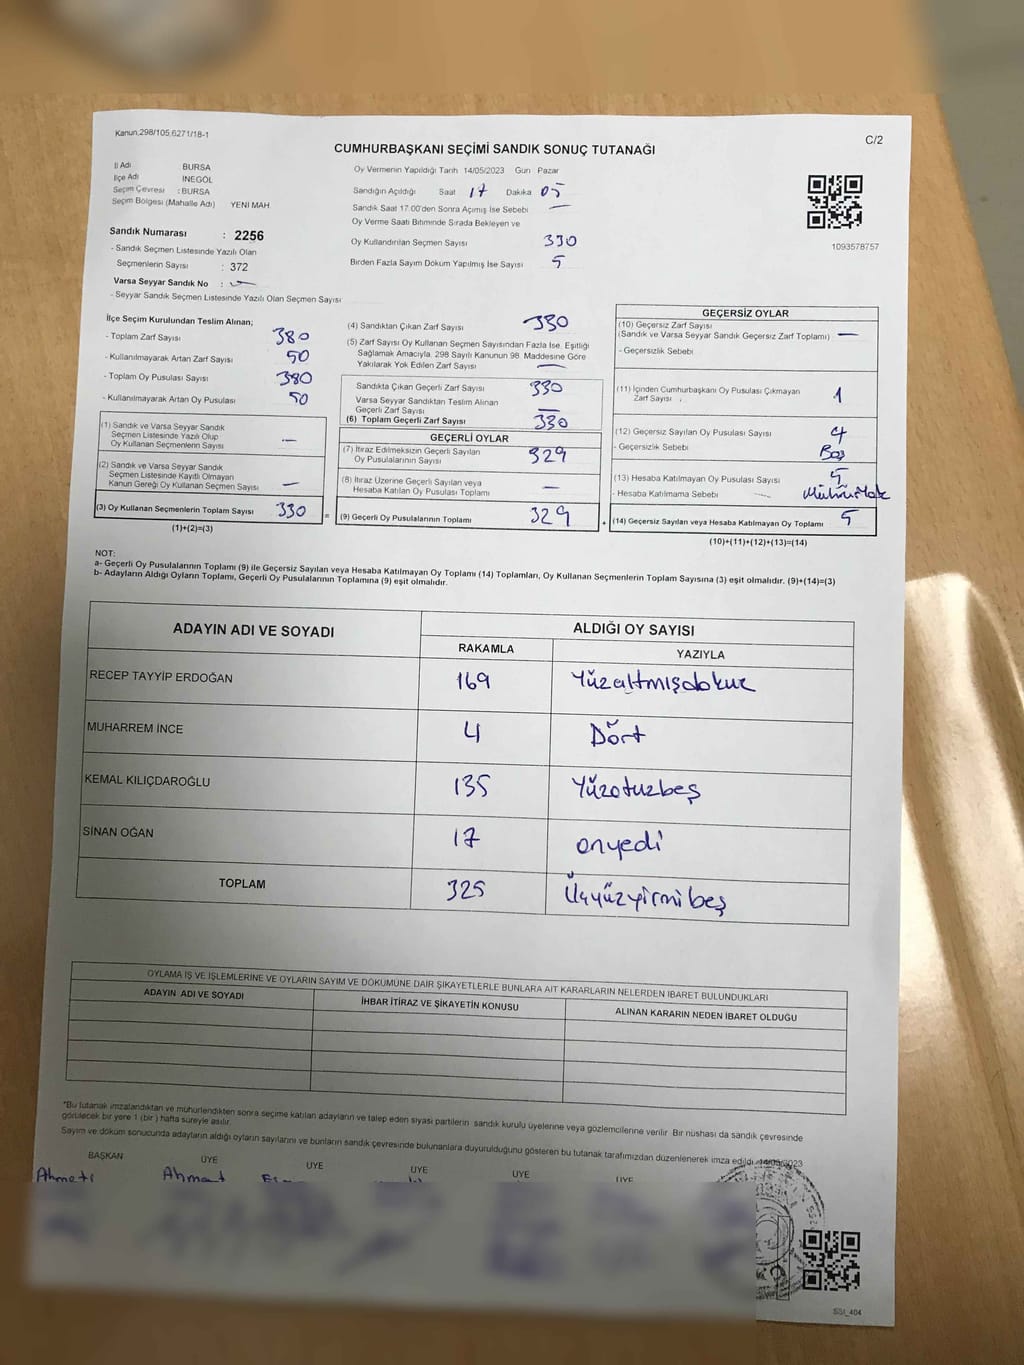 Kanun,298/105,6271/18-1
C/2
CUMHURBAŞKANI SEÇİMİ SANDIK SONUÇ TUTANAĞI
İl Adı BURSA
İlçe Adı İNEGÖL
Seçim Çevresi : BURSA
Seçim Bölgesi (Mahalle Adı) YENİ MAH
Sandık Numarası : 2256
- Sandık Seçmen Listesinde Yazılı Olan
Seçmenlerin Sayısı : 372
Varsa Seyyar Sandık No :
- Seyyar Sandık Seçmen Listesinde Yazılı Olan Seçmen Sayısı
Oy Vermenin Yapıldığı Tarih 14/05/2023 Gün Pazar
Sandığın Açıldığı Saat 17 Dakika 05
Sandık Saat 17:00'den Sonra Açımış İse Sebebi
Oy Verme Saati Bitiminde Sırada Bekleyen ve
Oy Kullandırılan Seçmen Sayısı 330
Birden Fazla Sayım Döküm Yapılmış İse Sayısı 5
1093578757
İlçe Seçim Kurulundan Teslim Alınan;
- Toplam Zarf Sayısı 380
- Kullanılmayarak Artan Zarf Sayısı 50
- Toplam Oy Pusulası Sayısı 380
- Kullanılmayarak Artan Oy Pusulası 50
(1) Sandık ve Varsa Seyyar Sandık
Seçmen Listesinde Yazılı Olup
Oy Kullanan Seçmenlerin Sayısı —
(2) Sandık ve Varsa Seyyar Sandık
Seçmen Listesinde Kayıtlı Olmayan
Kanun Gereği Oy Kullanan Seçmen Sayısı —
(3) Oy Kullanan Seçmenlerin Toplam Sayısı 330
(1)+(2)=(3)
=
(4) Sandıktan Çıkan Zarf Sayısı 330
(5) Zarf Sayısı Oy Kullanan Seçmen Sayısından Fazla İse, Eşitliği
Sağlamak Amacıyla, 298 Sayılı Kanunun 98. Maddesine Göre
Yakılarak Yok Edilen Zarf Sayısı —
Sandıkta Çıkan Geçerli Zarf Sayısı 330
Varsa Seyyar Sandıktan Teslim Alınan
Geçerli Zarf Sayısı —
(6) Toplam Geçerli Zarf Sayısı 330
GEÇERLİ OYLAR
(7) İtiraz Edilmeksizin Geçerli Sayılan
Oy Pusulalarının Sayısı 329
(8) İtiraz Üzerine Geçerli Sayılan veya
Hesaba Katılan Oy Pusulası Toplamı —
(9) Geçerli Oy Pusulalarının Toplamı 329
+
GEÇERSİZ OYLAR
(10) Geçersiz Zarf Sayısı
(Sandık ve Varsa Seyyar Sandık Geçersiz Zarf Toplamı) —
- Geçersizlik Sebebi
(11) İçinden Cumhurbaşkanı Oy Pusulası Çıkmayan
Zarf Sayısı : 1
(12) Geçersiz Sayılan Oy Pusulası Sayısı 4
- Geçersizlik Sebebi Boş
(13) Hesaba Katılmayan Oy Pusulası Sayısı 5
- Hesaba Katılmama Sebebi
(14) Geçersiz Sayılan veya Hesaba Katılmayan Oy Toplamı 5
(10)+(11)+(12)+(13)=(14)
NOT:
a- Geçerli Oy Pusulalarının Toplamı (9) ile Geçersiz Sayılan veya Hesaba Katılmayan Oy Toplamı (14) Toplamları, Oy Kullanan Seçmenlerin Toplam Sayısına (3) eşit olmalıdır. (9)+(14)=(3)
b- Adayların Aldığı Oyların Toplamı, Geçerli Oy Pusulalarının Toplamına (9) eşit olmalıdır.
ADAYIN ADI VE SOYADI ALDIĞI OY SAYISI
RAKAMLA YAZIYLA
RECEP TAYYİP ERDOĞAN 169 Yüzaltmışdokuz
MUHARREM İNCE 4 Dört
KEMAL KILIÇDAROĞLU 135 Yüzotuzbeş
SİNAN OĞAN 17 onyedi
TOPLAM 325 Üçyüzyirmibeş
OYLAMA İŞ VE İŞLEMLERİNE VE OYLARIN SAYIM VE DÖKÜMÜNE DAİR ŞİKAYETLERLE BUNLARA AİT KARARLARIN NELERDEN İBARET BULUNDUKLARI
ADAYIN ADI VE SOYADI İHBAR İTİRAZ VE ŞİKAYETİN KONUSU ALINAN KARARIN NEDEN İBARET OLDUĞU
*Bu tutanak imzalandıktan ve mühürlendikten sonra seçime katılan adayların ve talep eden siyasi partilerin sandık kurulu üyelerine veya gözlemcilerine verilir. Bir nüshası da sandık çevresinde
görülecek bir yere 1 (bir ) hafta süreyle asılır.
Sayım ve döküm sonucunda adayların aldığı oyların sayılarını ve bunların sandık çevresinde bulunanlara duyurulduğunu gösteren bu tutanak tarafımızdan düzenlenerek imza edildi. 14/05/2023
BAŞKAN ÜYE ÜYE ÜYE ÜYE ÜYE
Ahmet Ahmet
SSI_404